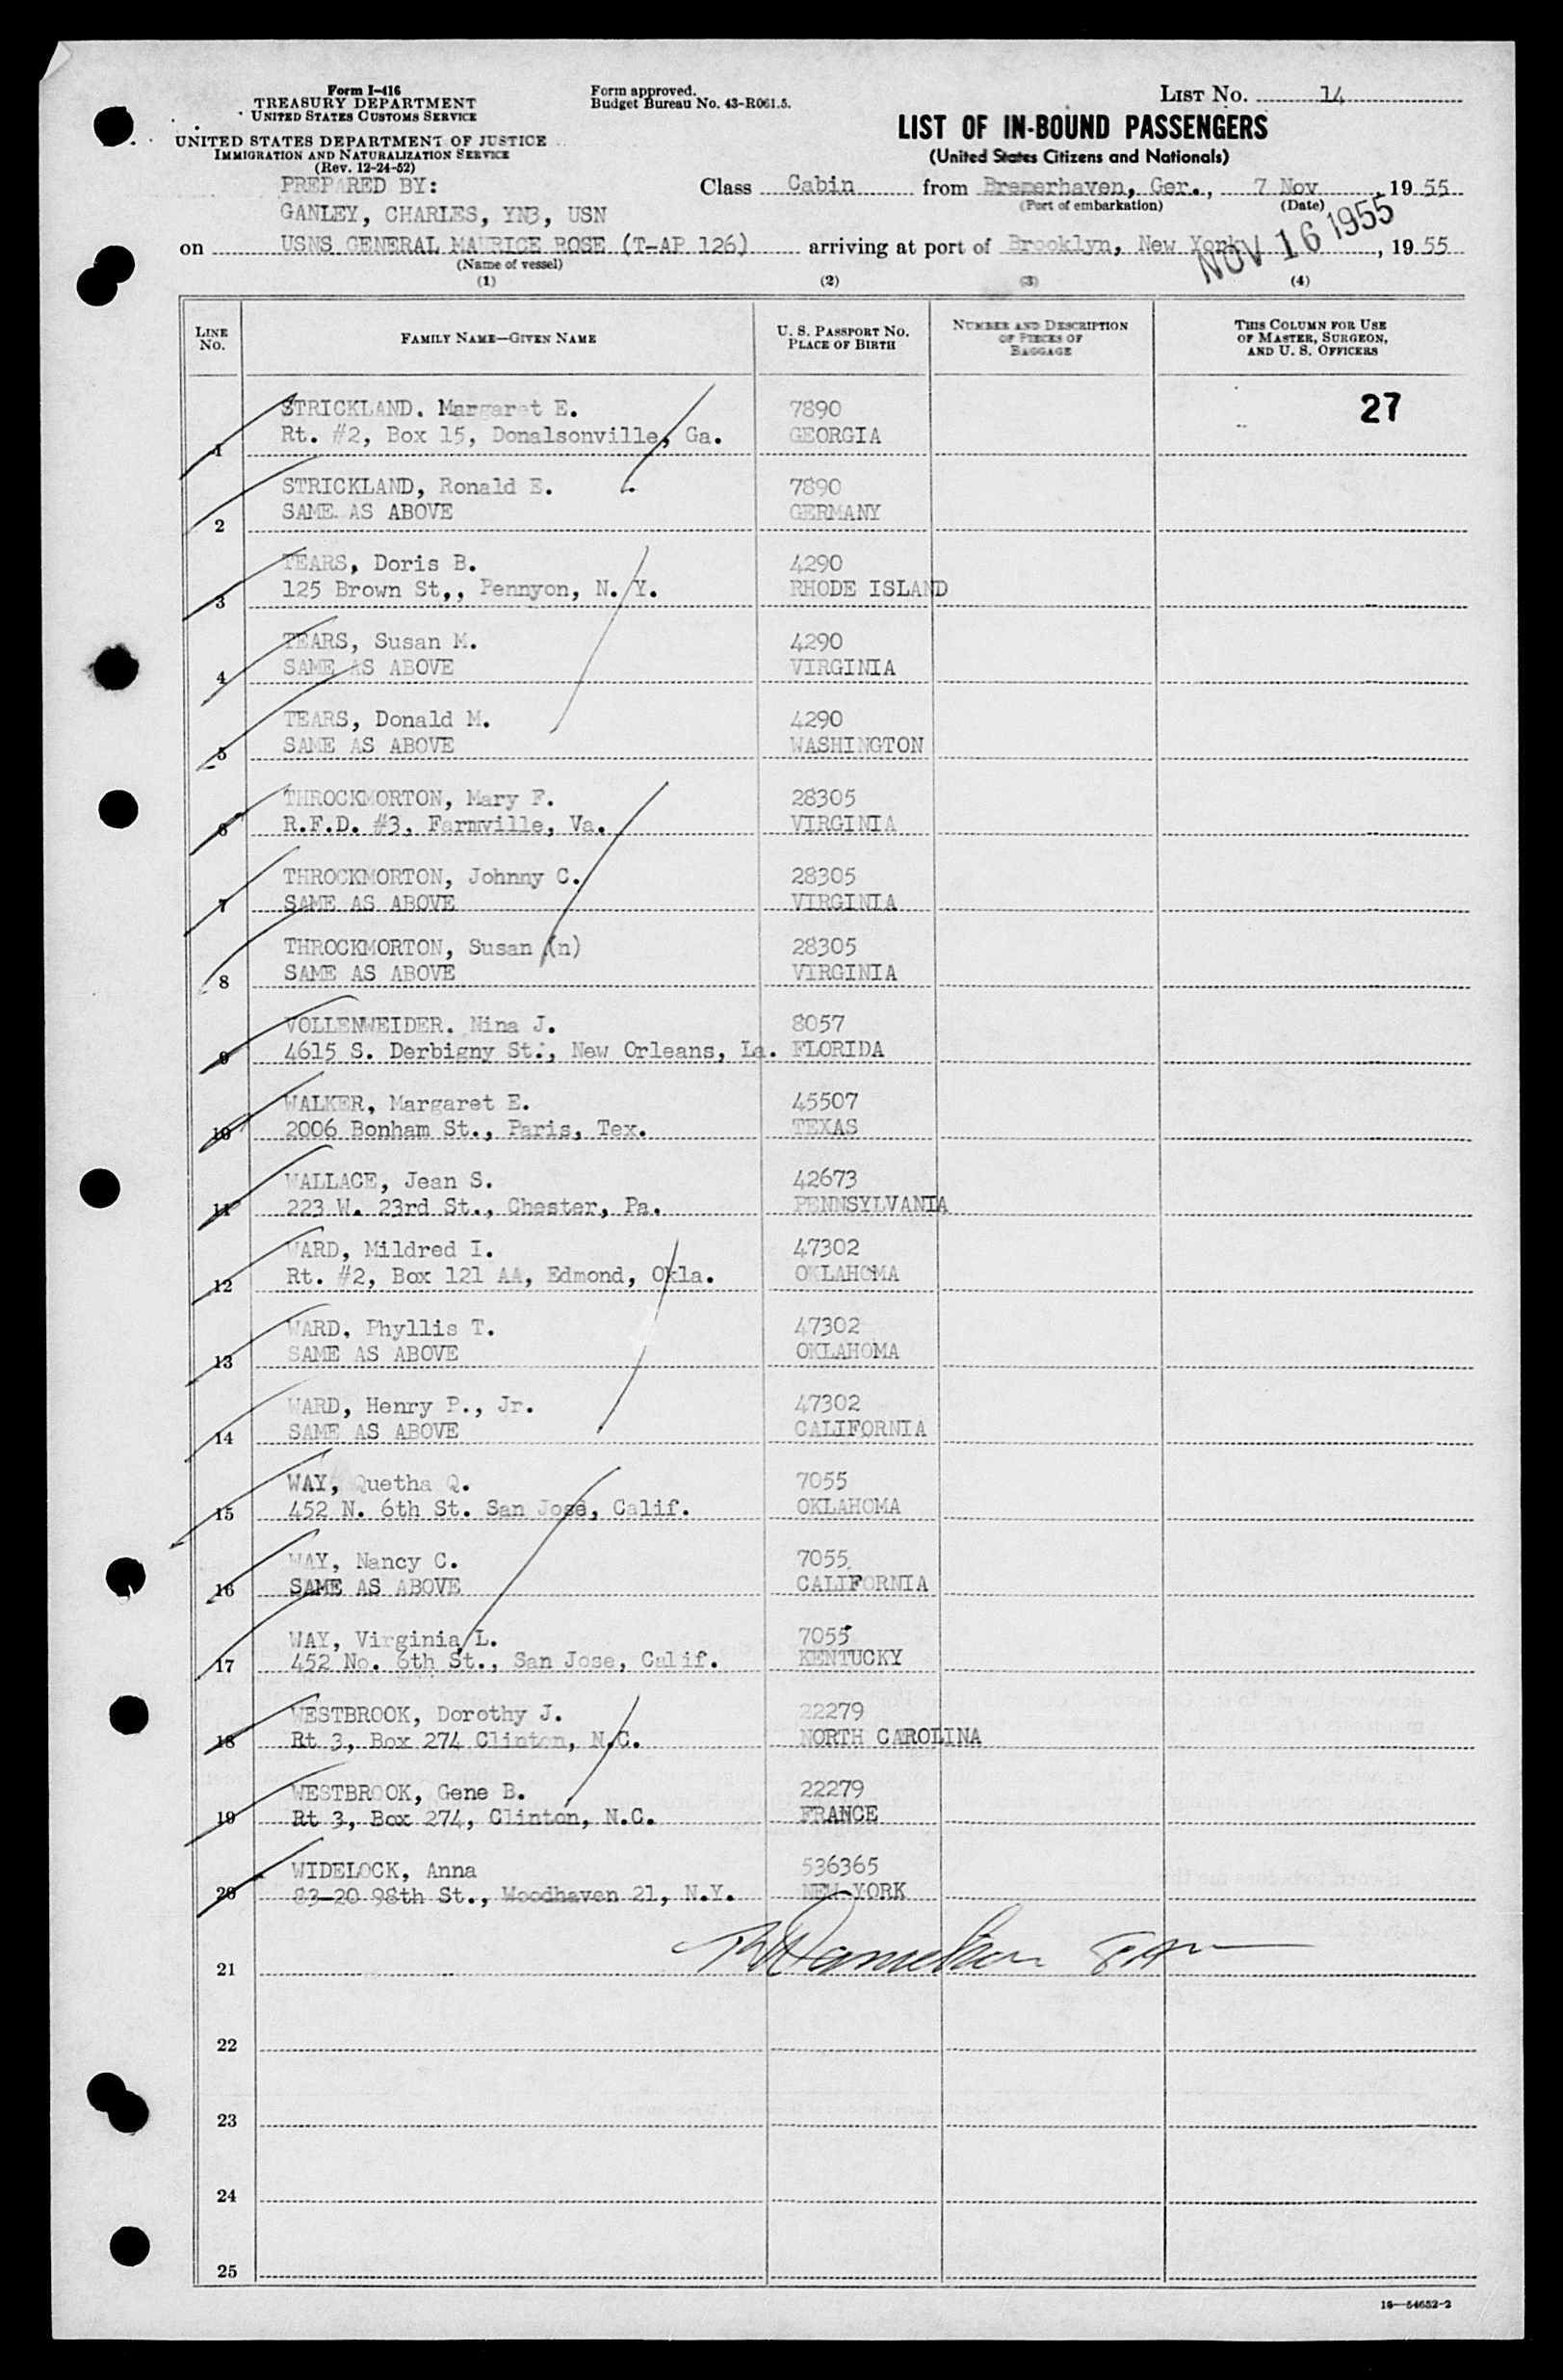 Form I-416
TREASURY DEPARTMENT
UNITED STATES CUSTOMS SERVICE
UNITED STATES DEPARTMENT OF JUSTICE
IMMIGRATION AND NATURALIZATION SERVICE
(Rev. 12-24-52)
Form approved.
Budget Bureau No. 43-R061.5.
LIST NO. 14
LIST OF IN-BOUND PASSENGERS
(United States Citizens and Nationals)
PREPARED BY:
GANLEY, CHARLES, YN3, USN
Class Cabin from Bremerhaven, Ger., 7 Nov, 19 55
(Port of embarkation) (Date)
on USNS GENERAL MAURICE ROSE (T-AP 126) arriving at port of Brooklyn, New York, 19 55
NOV 16 1955
(Name of vessel)
(1) (2) (3) (4)
LINE NO. FAMILY NAME—GIVEN NAME U. S. PASSPORT NO. PLACE OF BIRTH NUMBER AND DESCRIPTION OF PIECES OF BAGGAGE THIS COLUMN FOR USE OF MASTER, SURGEON, AND U. S. OFFICERS
27
STRICKLAND. Margaret E. 7890
1 Rt. #2, Box 15, Donalsonville, Ga. GEORGIA
STRICKLAND, Ronald E. 7890
2 SAME AS ABOVE GERMANY
TEARS, Doris B. 4290
3 125 Brown St,, Pennyon, N. Y. RHODE ISLAND
TEARS, Susan M. 4290
4 SAME AS ABOVE VIRGINIA
TEARS, Donald M. 4290
5 SAME AS ABOVE WASHINGTON
THROCKMORTON, Mary F. 28305
6 R.F.D. #3, Farmville, Va. VIRGINIA
THROCKMORTON, Johnny C. 28305
7 SAME AS ABOVE VIRGINIA
THROCKMORTON, Susan (n) 28305
8 SAME AS ABOVE VIRGINIA
VOLLENWEIDER. Nina J. 8057
9 4615 S. Derbigny St., New Orleans, La. FLORIDA
WALKER, Margaret E. 45507
10 2006 Bonham St., Paris, Tex. TEXAS
WALLACE, Jean S. 42673
11 223 W. 23rd St., Chester, Pa. PENNSYLVANIA
WARD, Mildred I. 47302
12 Rt. #2, Box 121 AA, Edmond, Okla. OKLAHOMA
WARD, Phyllis T. 47302
13 SAME AS ABOVE OKLAHOMA
WARD, Henry P., Jr. 47302
14 SAME AS ABOVE CALIFORNIA
WAY, Quetha Q. 7055
15 452 N. 6th St. San José, Calif. OKLAHOMA
WAY, Nancy C. 7055
16 SAME AS ABOVE CALIFORNIA
WAY, Virginia L. 7055
17 452 No. 6th St., San Jose, Calif. KENTUCKY
WESTBROOK, Dorothy J. 22279
18 Rt 3, Box 274 Clinton, N.C. NORTH CAROLINA
WESTBROOK, Gene B. 22279
19 Rt 3, Box 274, Clinton, N.C. FRANCE
WIDELOCK, Anna 536365
20 83-20 98th St., Woodhaven 21, N.Y. NEW YORK
21
22
23
24
25
16—54652-2